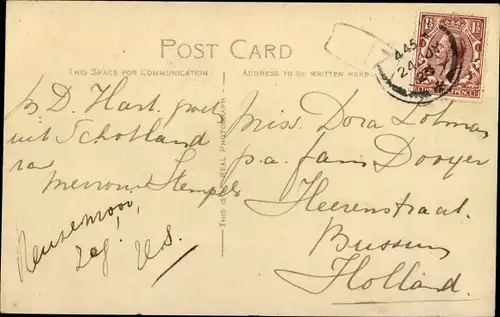 POST CARD
THIS SPACE FOR COMMUNICATION
ADDRESS TO BE WRITTEN HERE
THIS IS A REAL PHOTOGRAPH
1½ 1½
445
24
D. Hart.
uit Schotland
van
mevrouw Stempels
Reusemooi,
zeg!
Miss. Dora Lotman
p.a. fam Dooyer
Heerenstraat.
Bussum
Holland.